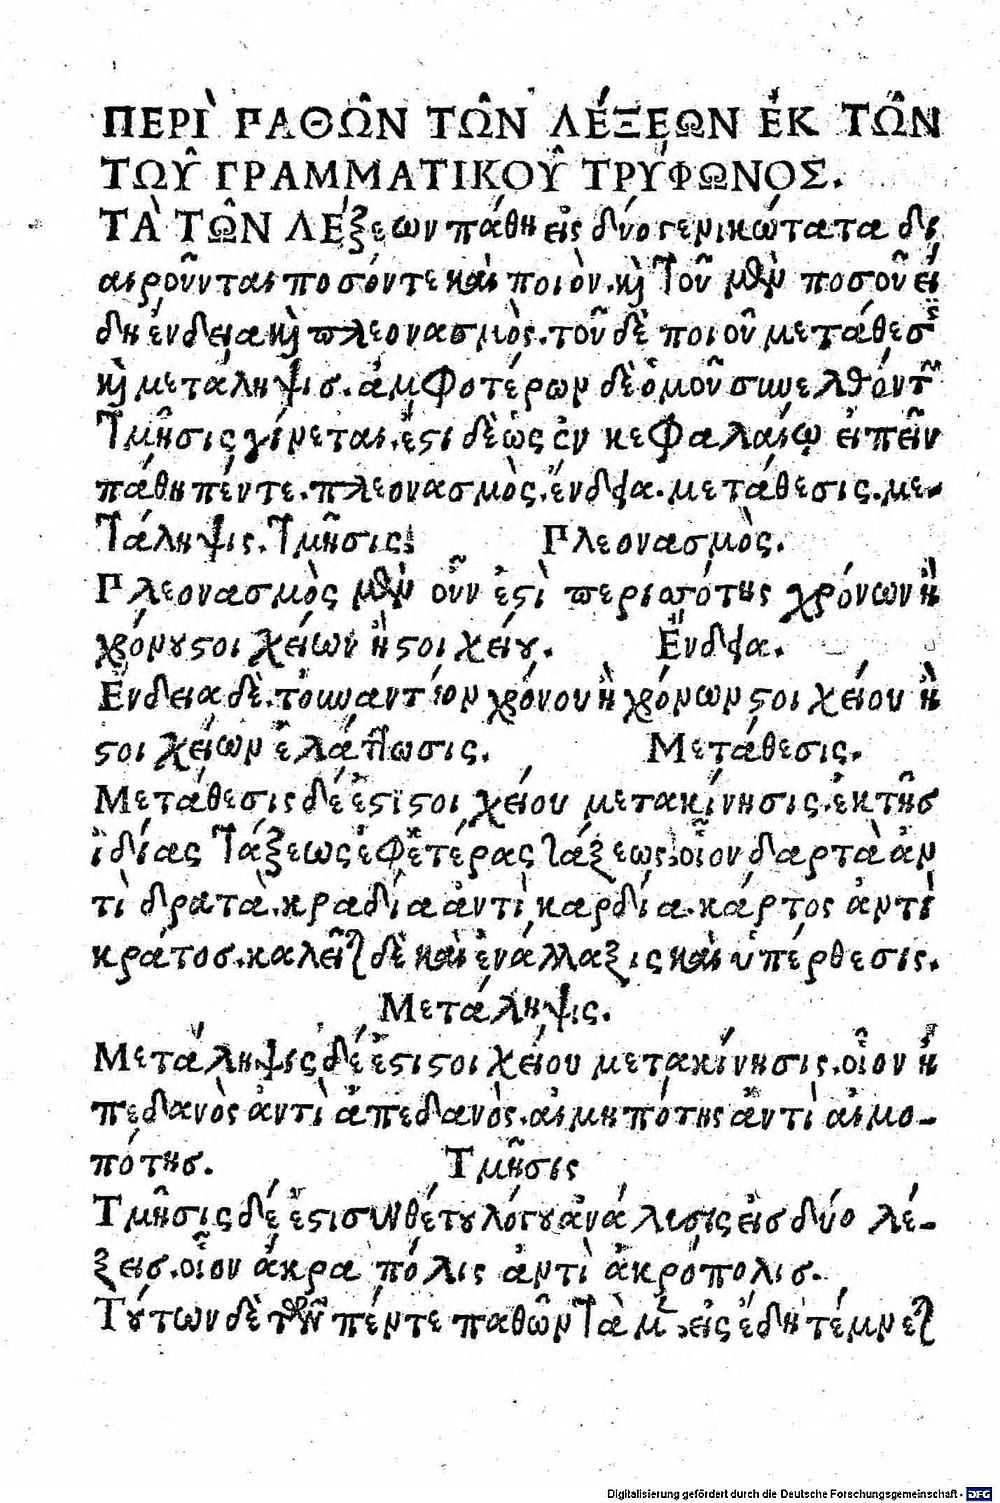 ΠΕΡῚ ΠΑΘΩ͂Ν ΤΩ͂Ν ΛΈΞΕΩΝ ἘΚ ΤΩ͂Ν
ΤΩΥ͂ ΓΡΑΜΜΑΤΙΚΟΥ͂ ΤΡΎΦΩΝΟΣ.
ΤᾺ ΤΩ͂Ν ΛΈξεων πάθη εἰς δύο γενικώτατα δι
αιροῦνται ποσόντε καὶ ποιὸν. καὶ τοῦ μὲν ποσοῦ εἴ
δη ἐνδεια καὶ πλεονασμὸς. τοῦ δὲ ποιοῦ μετάθεσις
καὶ μετάληψισ. ἀμφοτέρων δὲ ὁμοῦ συνελθόντων
τμῆσις γίνεται. ἔστι δὲ ὡς ἐν κεφαλαίῳ εἰπεῖν
πάθη πέντε. πλεονασμὸς. ἔνδεια. μετάθεσις. με-
τάληψις. τμῆσις. Πλεονασμὸς.
Πλεονασμὸς μὲν οὖν ἐστὶ περισσότης χρόνων ἢ
χρόνου στοιχείων ἢ στοιχείου. Ἔνδεια.
Ἔνδεια δὲ. τοὐναντίον χρόνου ἢ χρόνων στοιχείου ἢ
στοιχείων ἐλάττωσις. Μετάθεσις.
Μετάθεσις δέ ἐστι στοιχείου μετακίνησις. ἐκ τῆσ
ἰδίας τάξεως ἐφ' ἑτέρας τάξεως. οἷον δαρτὰ ἀν
τὶ δρατὰ. κραδία ἀντὶ καρδία. κάρτος ἀντὶ
κράτοσ. καλεῖται δὲ καὶ ἐνάλλαξις καὶ ὑπέρθεσις.
Μετάληψις.
Μετάληψις δέ ἐστι στοιχείου μετακίνησις. οἷον ἠ
πεδανὸς ἀντὶ ἀπεδανὸς. αἱμηπότης ἀντὶ αἱμο-
πότησ. Τμῆσις
Τμῆσις δέ ἐστι συνθέτου λόγου ἀνάλυσις εἰσ δύο λέ-
ξεισ. οἷον ἄκρα πόλις ἀντὶ ἀκρόπολισ.
Τούτων δὲ τῶν πέντε παθῶν τὰ μὲν εἰς εἴδη τέμνεται